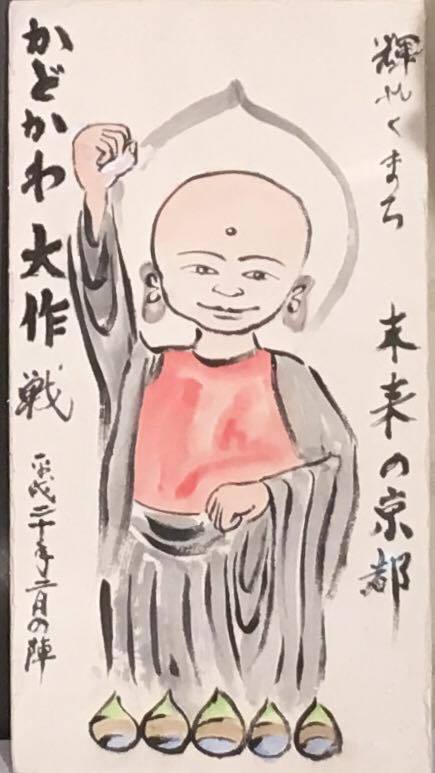 輝くまち
未来の京都
かどかわ大作戦
平成二十年二月の陣